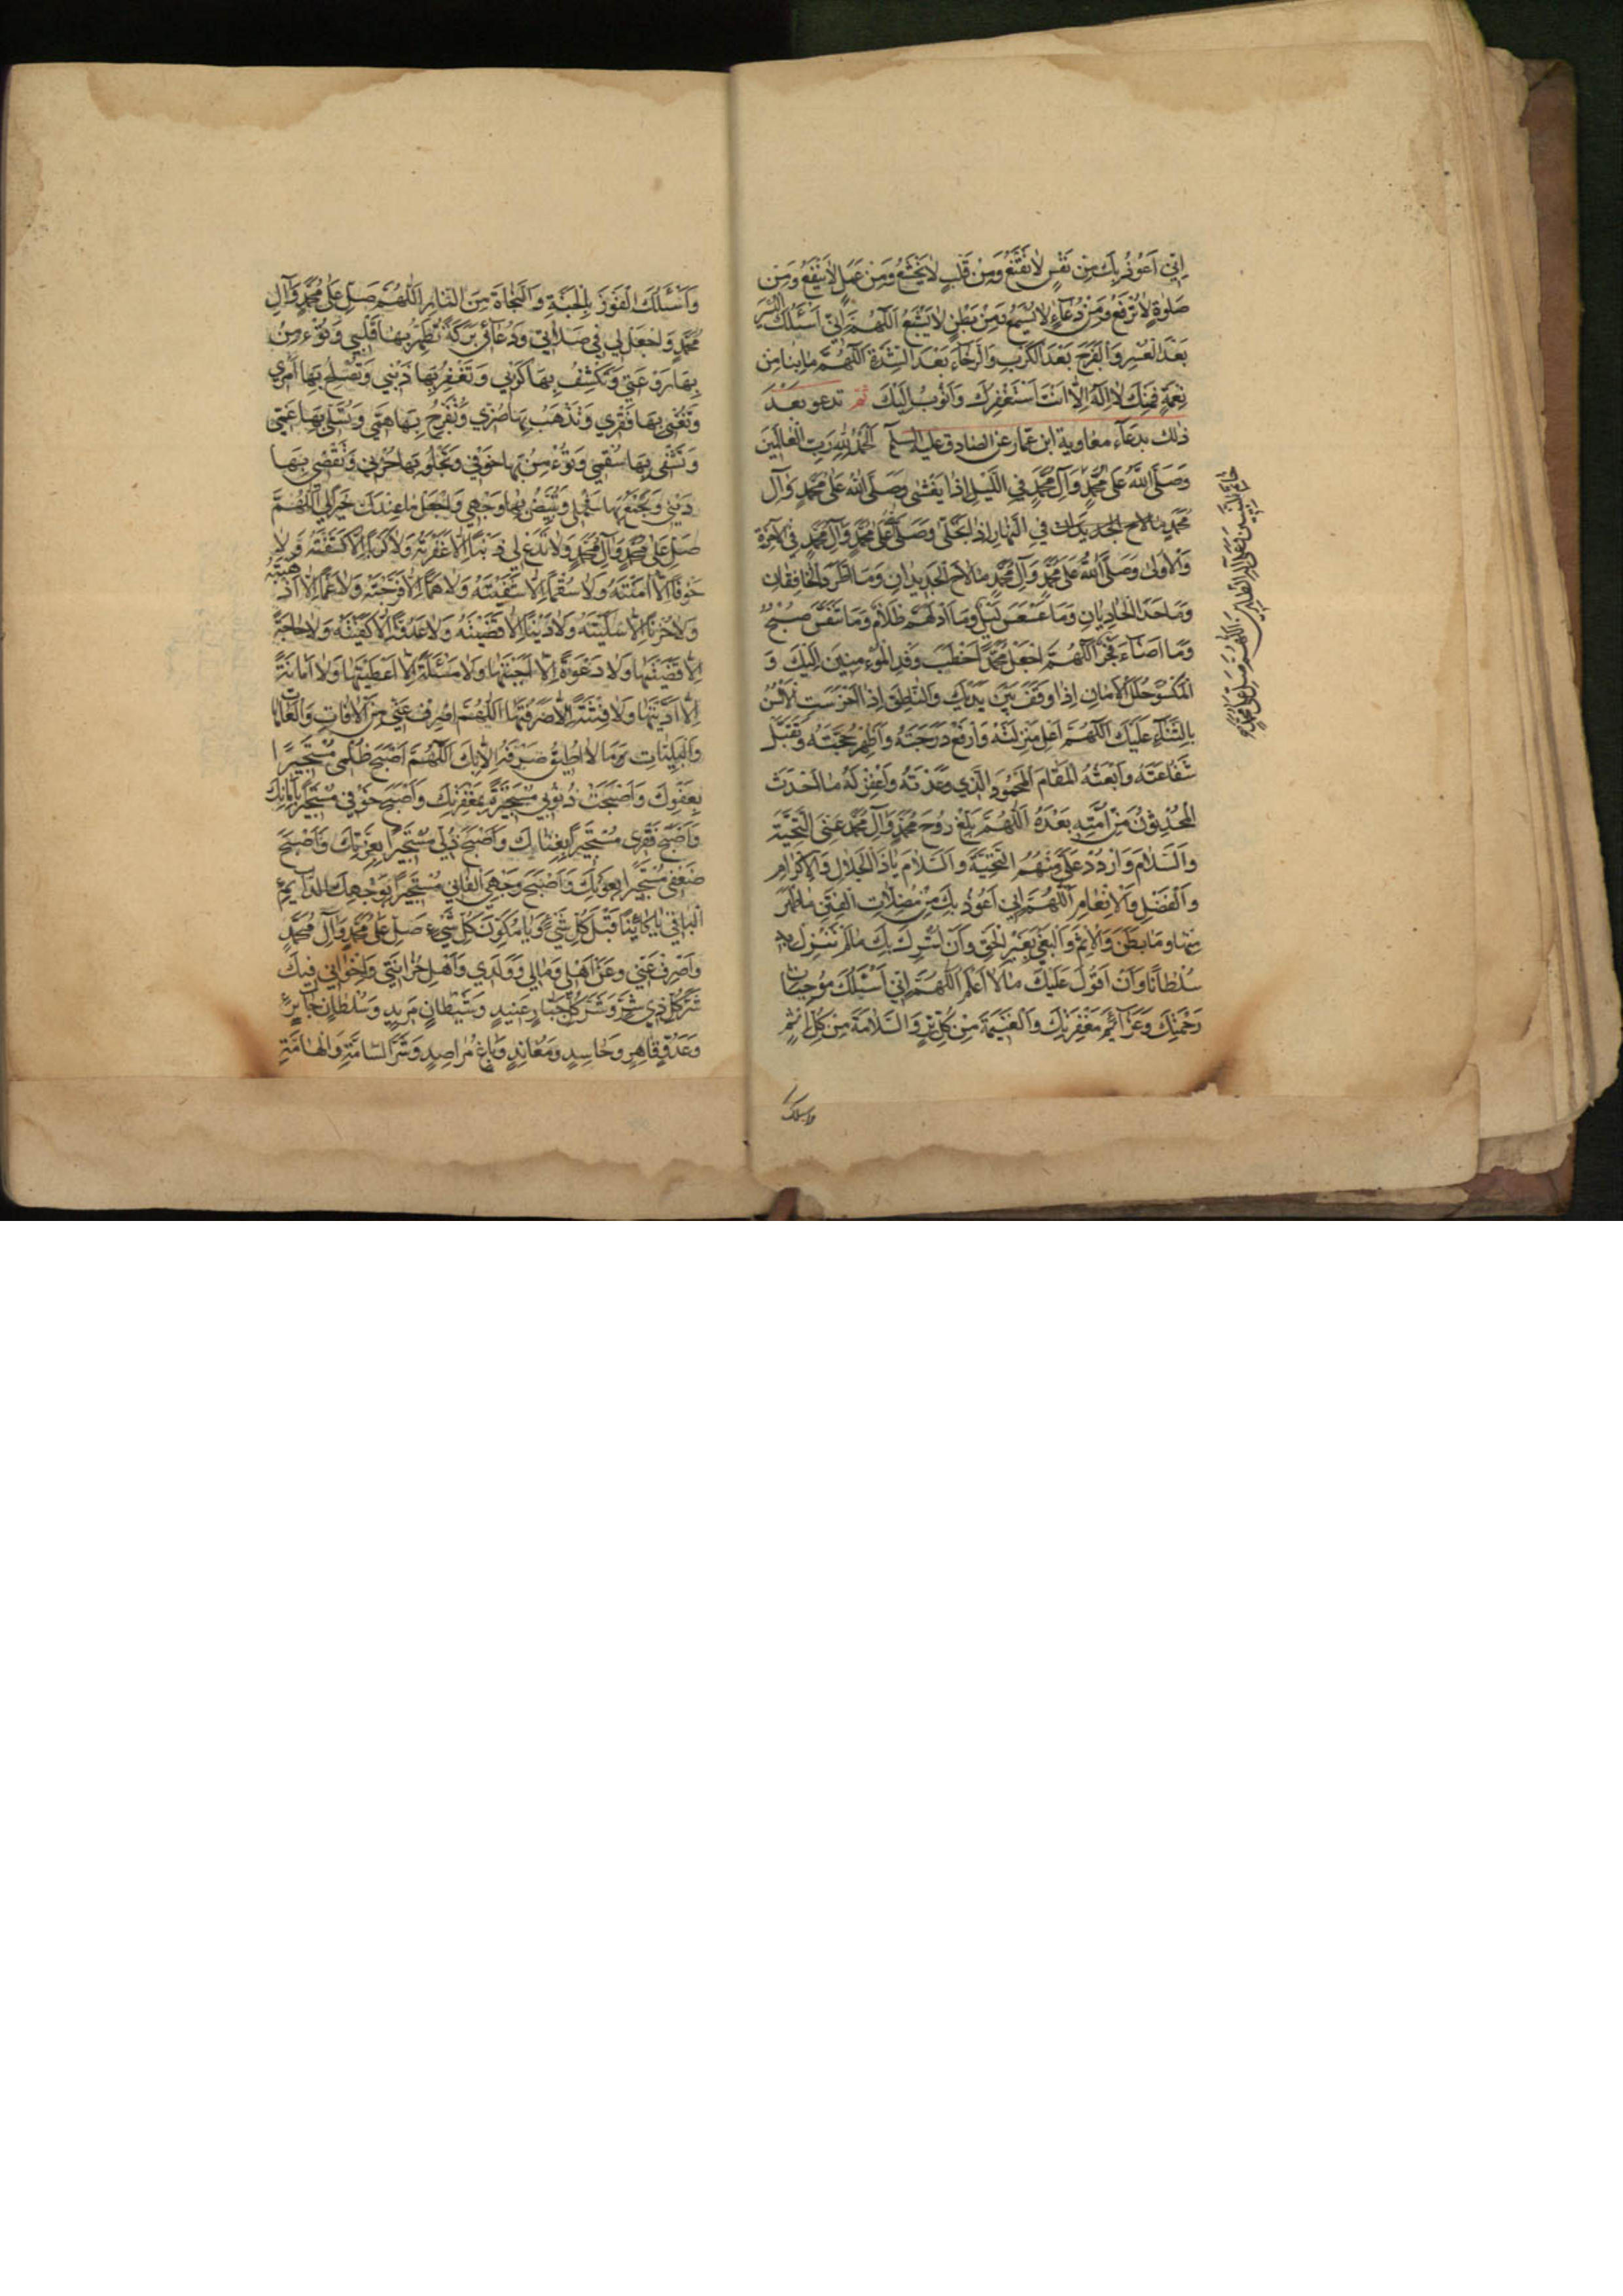 اِنّي اَعُوذُ بِكَ مِنْ نَفْسٍ لا تَقْنَعُ وَمِنْ قَلْبٍ لا يَخْشَعُ وَمِنْ عَمَلٍ لا يَنْفَعُ وَمِنْ
صَلوةٍ لا تُرْفَعُ وَمِنْ دُعاءٍ لا يُسْمَعُ وَمِنْ بَطْنٍ لا يَشْبَعُ اَللّهُمَّ اِنّي اَسْئَلُكَ الْيُسْرَ
بَعْدَ الْعُسْرِ وَالْفَرَجَ بَعْدَ الْكَرْبِ وَالرَّخاءَ بَعْدَ الشِّدَّةِ اَللّهُمَّ ما بِنا مِنْ
نِعْمَةٍ فَمِنْكَ لا اِلهَ اِلّا اَنْتَ اَسْتَغْفِرُكَ وَاَتُوبُ اِلَيْكَ ثم تدعو بعد
ذلك بدعاء معاوية ابن عمار عن الصادق عليه السلم اَلْحَمْدُ لِلّهِ رَبِّ الْعالَمينَ
وَصَلَّى اللّهُ عَلى مُحَمَّدٍ وَآلِ مُحَمَّدٍ فِي اللَّيْلِ اِذا يَغْشى وَصَلَّى اللّهُ عَلى مُحَمَّدٍ وَآلِ
مُحَمَّدٍ فِي النَّهارِ اِذا تَجَلّى وَصَلَّى اللّهُ عَلى مُحَمَّدٍ وَآلِ مُحَمَّدٍ فِي الْآخِرَةِ
وَالْاُولى وَصَلَّى اللّهُ عَلى مُحَمَّدٍ وَآلِ مُحَمَّدٍ ما لاحَ الْجَديدانِ وَمَا اطَّرَدَ الْخافِقانِ
وَما حَدَا الْحادِيانِ وَما عَسْعَسَ لَيْلٌ وَمَا ادْلَهَمَّ ظَلامٌ وَما تَنَفَّسَ صُبْحٌ
وَما اَضاءَ فَجْرٌ اَللّهُمَّ اجْعَلْ مُحَمَّداً خَطيبَ وَفْدِ الْمُؤْمِنينَ اِلَيْكَ وَ
الْمَكْسُوَّ حُلَلَ الْاَمانِ اِذا وَقَفَ بَيْنَ يَدَيْكَ وَالنّاطِقَ اِذا خَرِسَتِ الْاَلْسُنُ
بِالثَّناءِ عَلَيْكَ اَللّهُمَّ اَعْلِ مَنْزِلَتَهُ وَارْفَعْ دَرَجَتَهُ وَاَظْهِرْ حُجَّتَهُ وَتَقَبَّلْ
شَفاعَتَهُ وَابْعَثْهُ الْمَقامَ الْمَحْمُودَ الَّذي وَعَدْتَهُ وَاغْفِرْ لَهُ ما اَحْدَثَ
الْمُحْدِثُونَ مِنْ اُمَّتِهِ بَعْدَهُ اَللّهُمَّ بَلِّغْ رُوحَ مُحَمَّدٍ وَآلِ مُحَمَّدٍ عَنِّى التَّحِيَّةَ
وَالسَّلامَ وَارْدُدْ عَلَيَّ مِنْهُمُ التَّحِيَّةَ وَالسَّلامَ يا ذَا الْجَلالِ وَالْاِكْرامِ
وَالْفَضْلِ وَالْاِنْعامِ اَللّهُمَّ اِنّي اَعُوذُ بِكَ مِنْ مُضِلّاتِ الْفِتَنِ ما ظَهَرَ
مِنْها وَما بَطَنَ وَالْاِثْمِ وَالْبَغْيِ بِغَيْرِ الْحَقِّ وَاَنْ اُشْرِكَ بِكَ ما لَمْ تُنَزِّلْ بِهِ
سُلْطاناً وَاَنْ اَقُولَ عَلَيْكَ ما لا اَعْلَمُ اَللّهُمَّ اِنّي اَسْئَلُكَ مُوجِباتِ
رَحْمَتِكَ وَعَزائِمَ مَغْفِرَتِكَ وَالْغَنيمَةَ مِنْ كُلِّ بِرٍّ وَالسَّلامَةَ مِنْ كُلِّ اِثْمٍ
واسئلك
خاتم النبيين وعلى آله الطاهرين اللهم صل على محمد
وَاَسْئَلُكَ الْفَوْزَ بِالْجَنَّةِ وَالنَّجاةَ مِنَ النّارِ اَللّهُمَّ صَلِّ عَلى مُحَمَّدٍ وَآلِ
مُحَمَّدٍ وَاجْعَلْ لي في صَلاتي وَدُعائي بَرَكَةً تُطَهِّرُ بِها قَلْبي وَتُؤْمِنُ
بِها رَوْعَتي وَتَكْشِفُ بِها كَرْبي وَتَغْفِرُ بِها ذَنْبي وَتُصْلِحُ بِها اَمْري
وَتُغْني بِها فَقْري وَتُذْهِبُ بِها ضُرّي وَتُفَرِّجُ بِها هَمّي وَتُسَلّي بِها غَمّي
وَتَشْفي بِها سُقْمي وَتُؤْمِنُ بِها خَوْفي وَتَجْلُو بِها حُزْني وَتَقْضي بِها
دَيْني وَتَجْمَعُ بِها شَمْلي وَتُبَيِّضُ بِها وَجْهي وَاجْعَلْ ما عِنْدَكَ خَيْراً لي اَللّهُمَّ
صَلِّ عَلى مُحَمَّدٍ وَآلِ مُحَمَّدٍ وَلا تَدَعْ لي ذَنْباً اِلّا غَفَرْتَهُ وَلا كَرْباً اِلّا كَشَفْتَهُ وَلا
خَوْفاً اِلّا آمَنْتَهُ وَلا سُقْماً اِلّا شَفَيْتَهُ وَلا هَمّاً اِلّا فَرَّجْتَهُ وَلا غَمّاً اِلّا اَذْهَبْتَهُ
وَلا حُزْناً اِلّا سَلَّيْتَهُ وَلا دَيْناً اِلّا قَضَيْتَهُ وَلا عَدُوّاً اِلّا كَفَيْتَهُ وَلا حاجَةً
اِلّا قَضَيْتَها وَلا دَعْوَةً اِلّا اَجَبْتَها وَلا مَسْئَلَةً اِلّا اَعْطَيْتَها وَلا اَمانَةً
اِلّا اَدَّيْتَها وَلا فِتْنَةً اِلّا صَرَفْتَها اَللّهُمَّ اصْرِفْ عَنّي مِنَ الْآفاتِ وَالْعاهاتِ
وَالْبَلِيّاتِ وَما لا اُطيقُ صَرْفَهُ اِلّا بِكَ اَللّهُمَّ اَصْبَحَ ظُلْمي مُسْتَجيراً
بِعَفْوِكَ وَاَصْبَحَتْ ذُنُوبي مُسْتَجيرَةً بِمَغْفِرَتِكَ وَاَصْبَحَ خَوْفي مُسْتَجيراً بِاَمانِكَ
وَاَصْبَحَ فَقْري مُسْتَجيراً بِغِناكَ وَاَصْبَحَ ذُلّي مُسْتَجيراً بِعِزَّتِكَ وَاَصْبَحَ
ضَعْفي مُسْتَجيراً بِقُوَّتِكَ وَاَصْبَحَ وَجْهِيَ الْفاني مُسْتَجيراً بِوَجْهِكَ الدّائِمِ
الْباقي يا كائِناً قَبْلَ كُلِّ شَيْءٍ وَيا مُكَوِّنَ كُلِّ شَيْءٍ صَلِّ عَلى مُحَمَّدٍ وَآلِ مُحَمَّدٍ
وَاصْرِفْ عَنّي وَعَنْ اَهْلي وَمالي وَوَلَدي وَاَهْلِ حُزانَتي وَاِخْواني فيكَ
شَرَّ كُلِّ ذي شَرٍّ وَشَرَّ كُلِّ جَبّارٍ عَنيدٍ وَشَيْطانٍ مَريدٍ وَسُلْطانٍ جائِرٍ
وَعَدُوٍّ قاهِرٍ وَحاسِدٍ وَمُعانِدٍ وَباغٍ مُراصِدٍ وَشَرَّ السّامَّةِ وَالْهامَّةِ